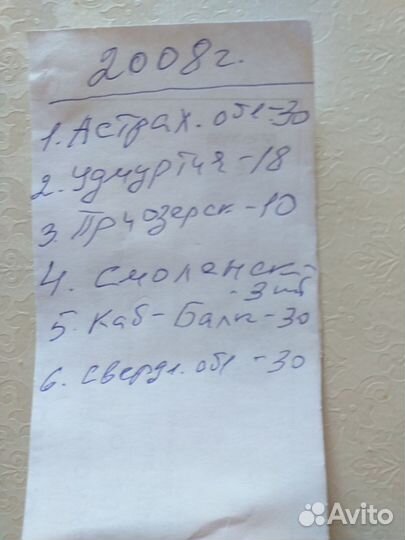 2008г.
1. Астрах. обл-30
2. Удмуртия-18
3. Приозерск-10
4. Смоленск-
-3 шт
5. Каб-Балк-30
6. Сверд. обл-30
Avito